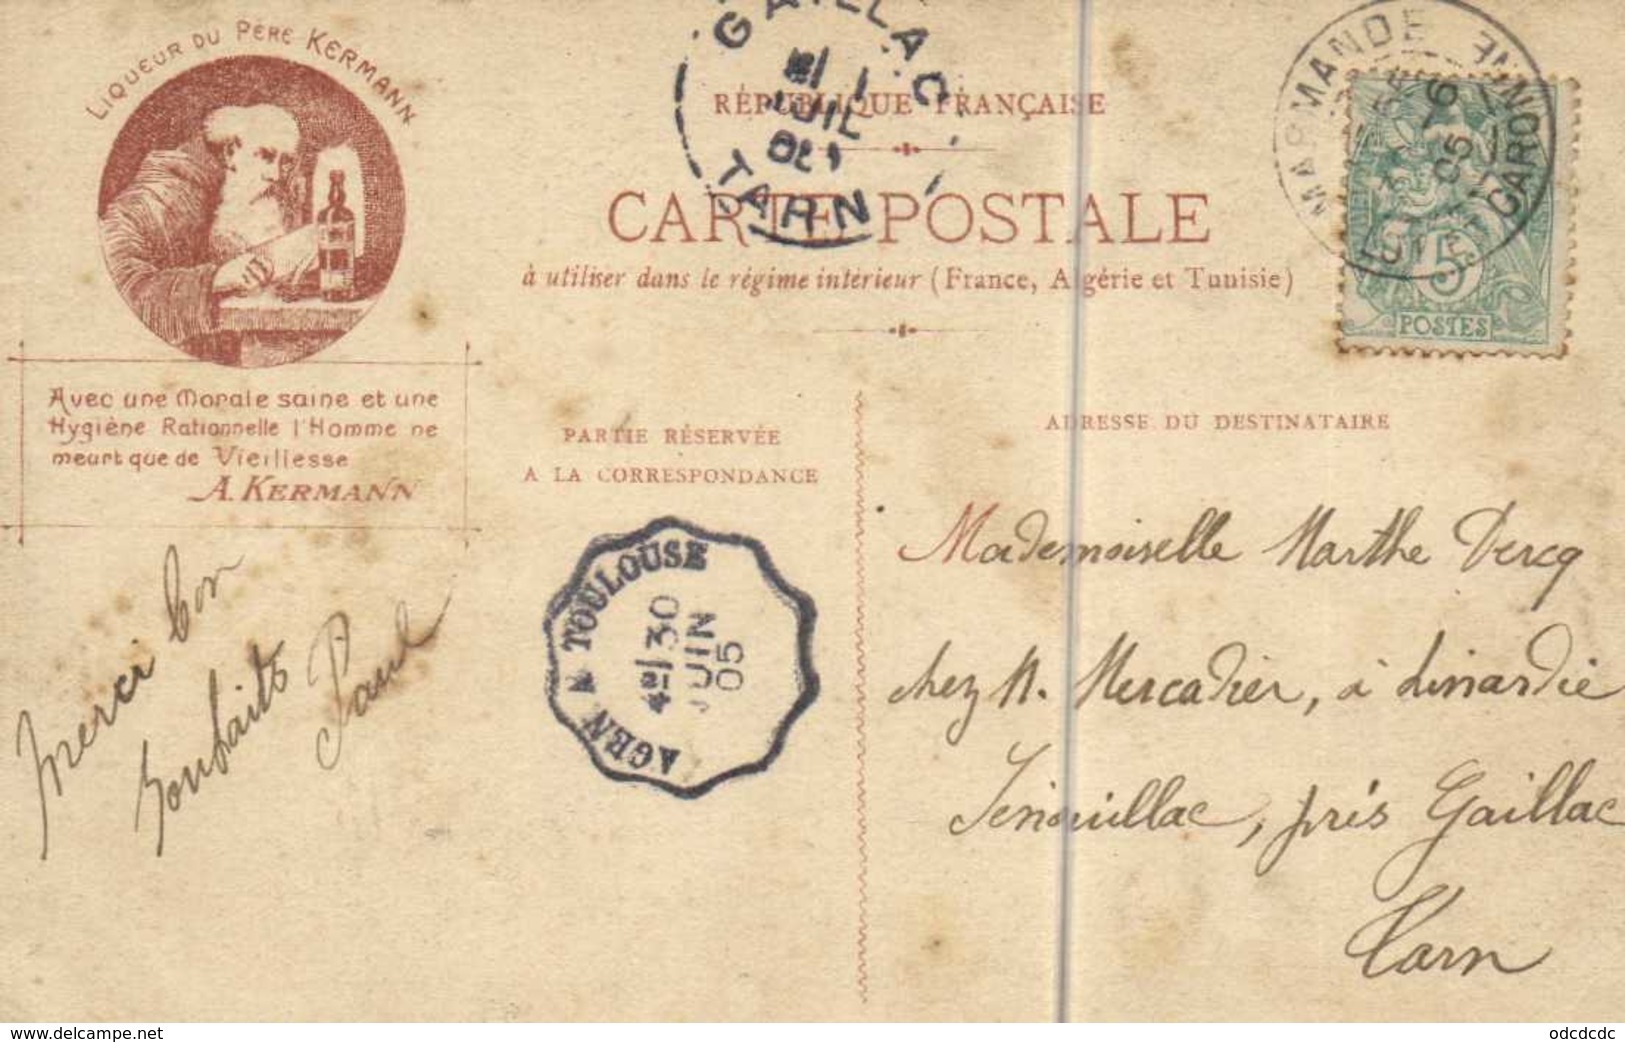 LIQUEUR DU PÈRE KERMANN
GAILLAC
1
JUIL
05
TARN
MARMANDE
LOT ET GARONNE
05
RÉPUBLIQUE FRANÇAISE
CARTE POSTALE
à utiliser dans le régime intérieur (France, Algérie et Tunisie)
5
POSTES
Avec une Morale saine et une
Hygiène Rationnelle l'Homme ne
meurt que de Vieillesse
A. KERMANN
PARTIE RÉSERVÉE
A LA CORRESPONDANCE
ADRESSE DU DESTINATAIRE
Merci bon
souhaits
Paul
AGEN A TOULOUSE
30
JUIN
05
Mademoiselle Marthe Dercq
chez M. Mercadier, à Linardié
Senouillac, près Gaillac
Tarn
www.delcampe.net
odcdcdc